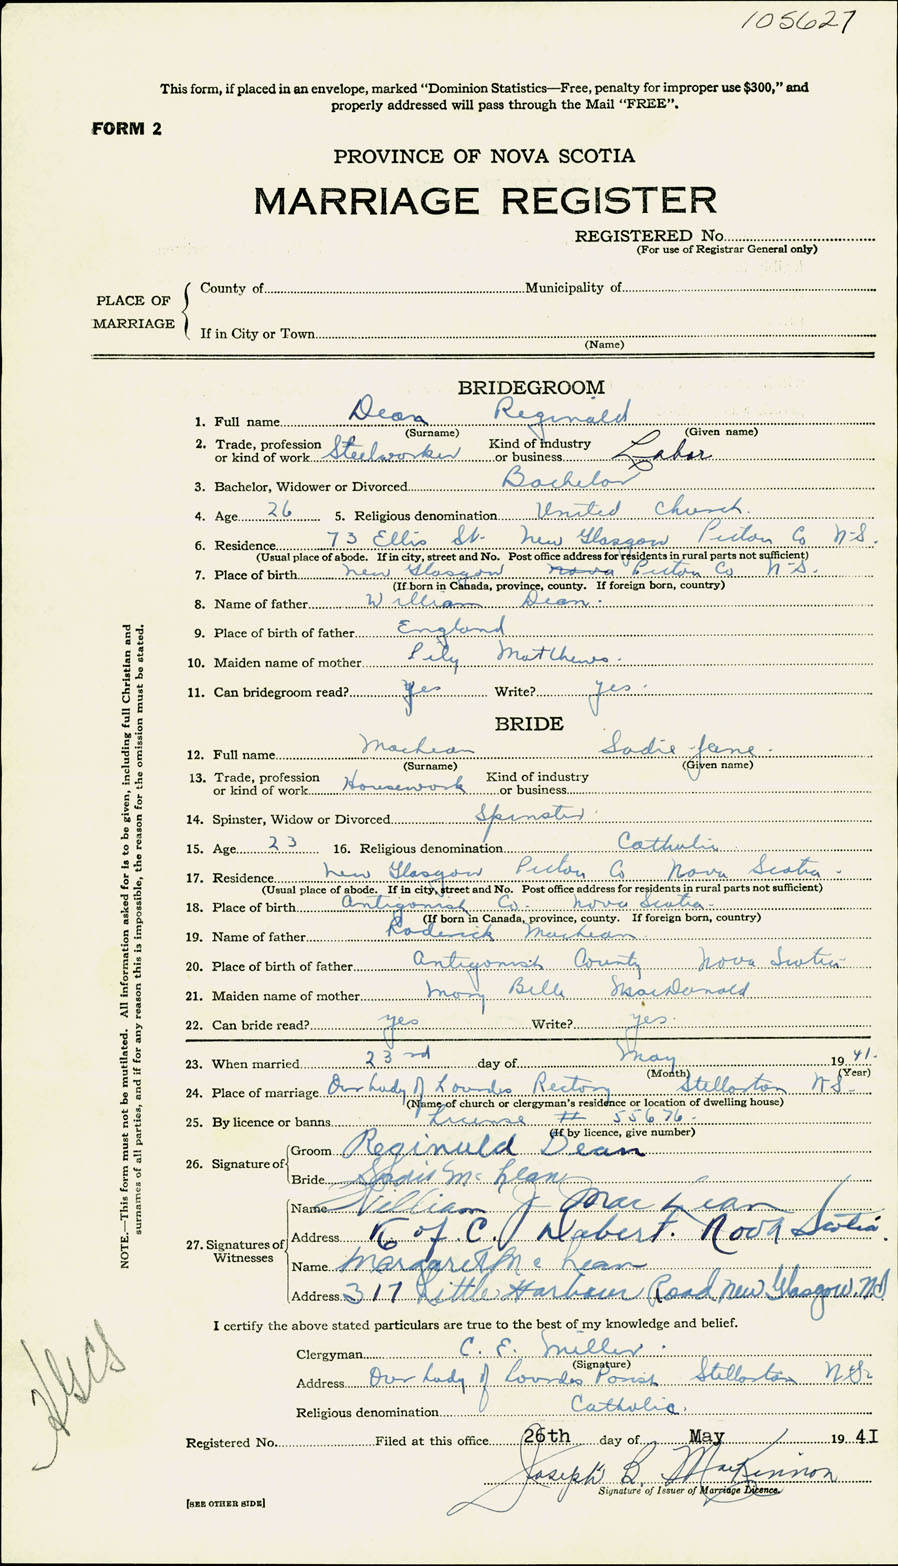 105627
This form, if placed in an envelope, marked "Dominion Statistics—Free, penalty for improper use $300," and
properly addressed will pass through the Mail "FREE".
FORM 2
PROVINCE OF NOVA SCOTIA
MARRIAGE REGISTER
REGISTERED No.
(For use of Registrar General only)
PLACE OF MARRIAGE
County of Municipality of
If in City or Town
(Name)
BRIDEGROOM
1. Full name Dean Reginald
(Surname) (Given name)
2. Trade, profession or kind of work Steelworker Kind of industry or business Labor
3. Bachelor, Widower or Divorced Bachelor
4. Age 26 5. Religious denomination United Church.
6. Residence 73 Ellis St. New Glasgow Pictou Co N-S.
(Usual place of abode. If in city, street and No. Post office address for residents in rural parts not sufficient)
7. Place of birth New Glasgow Nova Pictou Co N-S.
(If born in Canada, province, county. If foreign born, country)
8. Name of father William Dean.
9. Place of birth of father England
10. Maiden name of mother Lily Matthews.
11. Can bridegroom read? yes Write? yes.
BRIDE
12. Full name MacLean Sadie Jane.
(Surname) (Given name)
13. Trade, profession or kind of work Housework Kind of industry or business
14. Spinster, Widow or Divorced Spinster
15. Age 23 16. Religious denomination Catholic
17. Residence New Glasgow Pictou Co Nova Scotia.
(Usual place of abode. If in city, street and No. Post office address for residents in rural parts not sufficient)
18. Place of birth Antigonish Co. Nova Scotia.
(If born in Canada, province, county. If foreign born, country)
19. Name of father Roderick MacLean.
20. Place of birth of father Antigonish County Nova Scotia
21. Maiden name of mother Mary Belle MacDonald
22. Can bride read? yes Write? yes.
23. When married 23rd day of May 1941.
(Month) (Year)
24. Place of marriage Our Lady of Lourdes Rectory Stellarton N-S.
(Name of church or clergyman's residence or location of dwelling house)
25. By licence or banns License # 55676.
(If by licence, give number)
26. Signature of
Groom Reginald Dean
Bride Sadie McLean
27. Signatures of Witnesses
Name William J MacLean
Address K of C. Debert. Nova Scotia.
Name Margaret McLean
Address 317 Little Harbour Road New Glasgow, N.S.
I certify the above stated particulars are true to the best of my knowledge and belief.
Clergyman C. E. Miller.
(Signature)
Address Our Lady of Lourdes Parish Stellarton N-S.
Religious denomination Catholic.
Registered No. Filed at this office 26th day of May 1941
Joseph B. MacKinnon
Signature of Issuer of Marriage Licence.
[SEE OTHER SIDE]
NOTE.—This form must not be mutilated. All information asked for is to be given, including full Christian and
surnames of all parties, and if for any reason this is impossible, the reason for the omission must be stated.